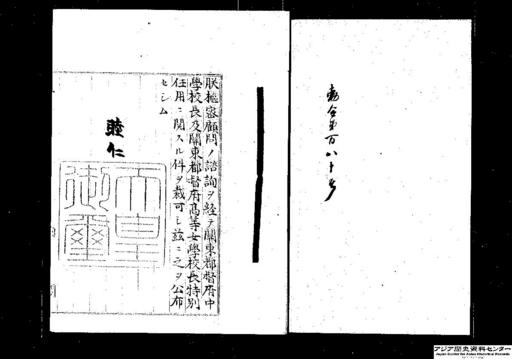 勅令第百八十号
朕樞密顧問ノ諮詢ヲ経テ関東都督府中
學校長及關東都督府高等女學校長特別
任用ニ関スル件ヲ裁可シ玆ニ之ヲ公布
セシム
睦仁
天皇
御璽
アジア歴史資料センター
Japan Center for Asian Historical Records